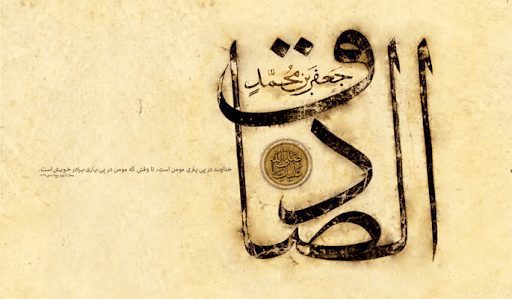 الصادق
جعفر بن محمد
خداوند در پی یاری مومن است، تا وقتی که مومن در پی یاری برادر خویش است.